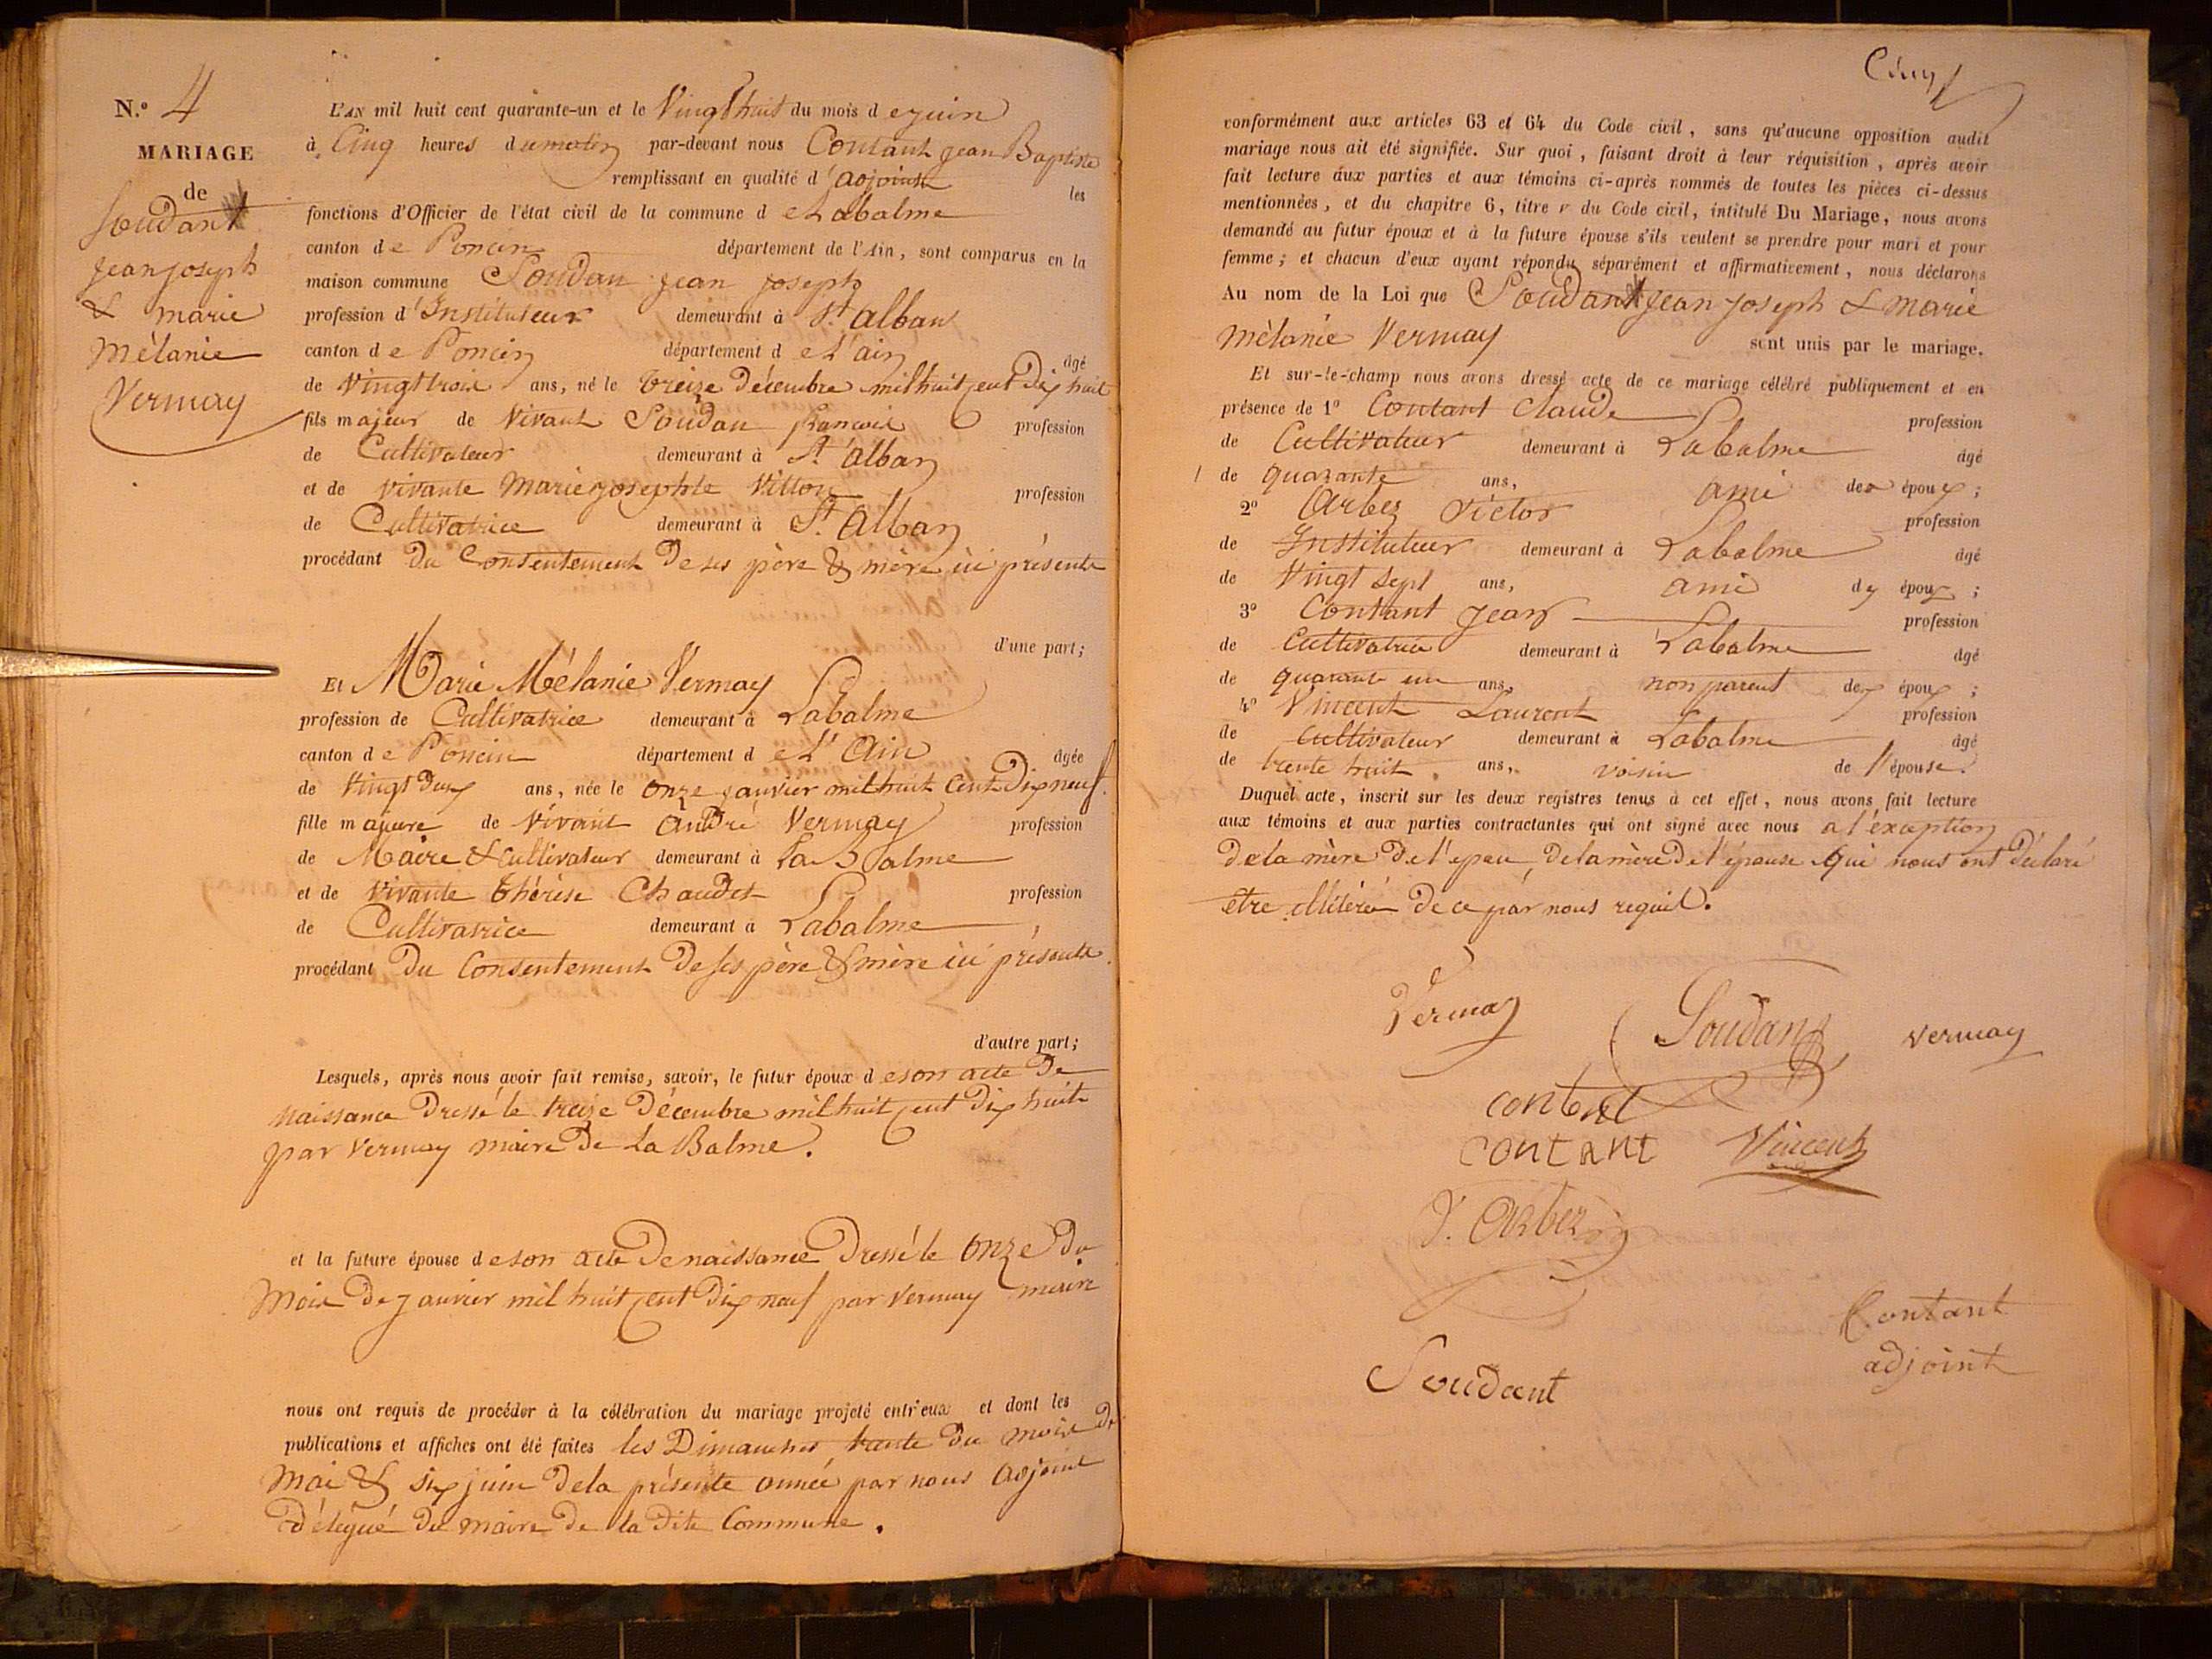 N.º 4
MARIAGE
de
Soudant
jean joseph
& marie
Mélanie
Vermay
L'AN mil huit cent quarante-un et le Vingt huit du mois de juin
à Cinq heures du matin par-devant nous Contant jean Baptiste
remplissant en qualité d'adjoint les
fonctions d'Officier de l'état civil de la commune de Labalme
canton de Poncin département de l'Ain, sont comparus en la
maison commune Soudan jean joseph
profession d'Instituteur demeurant à St alban
canton de Poncin département de L'ain âgé
de Vingt trois ans, né le treize Décembre mil huit cent Dix huit
fils majeur de Vivant Soudan francois profession
de Cultivateur demeurant à St alban
et de vivante Marie josephte profession
de Cultivatrice demeurant à St Alban
procédant Du Consentement De ses père & mère ici présents
d'une part;
Et Marie Mélanie Vermay
profession de Cultivatrice demeurant à Labalme
canton de Poncin département de L'Ain âgée
de Vingt Deux ans, née le onze janvier mil huit Cent Dix neuf
fille majeure de Vivant André Vermay profession
de Maire & Cultivateur demeurant à La Balme
et de Vivante thérèse Chaudet profession
de Cultivatrice demeurant à Labalme
procédant Du Consentement De ses père & mère ici présents.
d'autre part;
Lesquels, après nous avoir fait remise, savoir, le futur époux de son acte De
naissance Dressé le treize Décembre mil huit cent Dix huit
par Vermay maire De La Balme.
et la future épouse de son acte De naissance Dressé le onze Du
Mois De janvier mil huit cent Dix neuf par Vermay maire
nous ont requis de procéder à la célébration du mariage projeté entr'eux et dont les
publications et affiches ont été faites les Dimanches trente Du mois De
Mai & six juin De la présente année par nous adjoint
Délégué Du maire De la Dite Commune.
Cinq
conformément aux articles 63 et 64 du Code civil, sans qu'aucune opposition audit
mariage nous ait été signifiée. Sur quoi, faisant droit à leur réquisition, après avoir
fait lecture aux parties et aux témoins ci-après nommés de toutes les pièces ci-dessus
mentionnées, et du chapitre 6, titre v du Code civil, intitulé Du Mariage, nous avons
demandé au futur époux et à la future épouse s'ils veulent se prendre pour mari et pour
femme; et chacun d'eux ayant répondu séparément et affirmativement, nous déclarons
Au nom de la Loi que Soudant jean joseph & marie
mélanie Vermay sont unis par le mariage.
Et sur-le-champ nous avons dressé acte de ce mariage célébré publiquement et en
présence de 1º Contant Claude profession
de Cultivateur demeurant à Labalme âgé
de quarante ans, ami des époux;
2º Arbez Victor profession
de Instituteur demeurant à Labalme âgé
de Vingt sept ans, ami des époux;
3º Contant jean profession
de Cultivateur demeurant à Labalme âgé
de quarante un ans, non parent des époux;
4º Vincent Laurent profession
de Cultivateur demeurant à Labalme âgé
de trente huit ans, voisin de l'épouse.
Duquel acte, inscrit sur les deux registres tenus à cet effet, nous avons fait lecture
aux témoins et aux parties contractantes qui ont signé avec nous a l'exception
De la mère De l'epou, De la mère De l'épouse Qui nous ont Déclaré
être De ce par nous requis.
Vermay Soudan vermay
contant
contant Vincent
V. Arbez
Contant
adjoint
Soudant